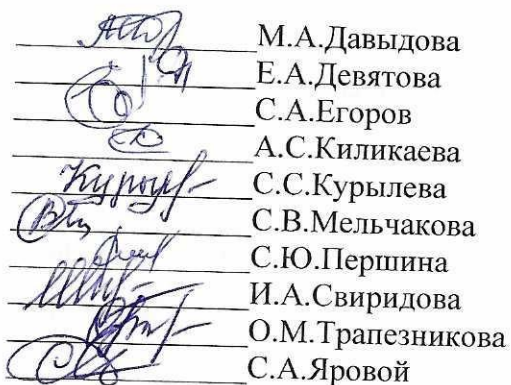 М.А.Давыдова
Е.А.Девятова
С.А.Егоров
А.С.Киликаева
С.С.Курылева
С.В.Мельчакова
С.Ю.Першина
И.А.Свиридова
О.М.Трапезникова
С.А.Яровой